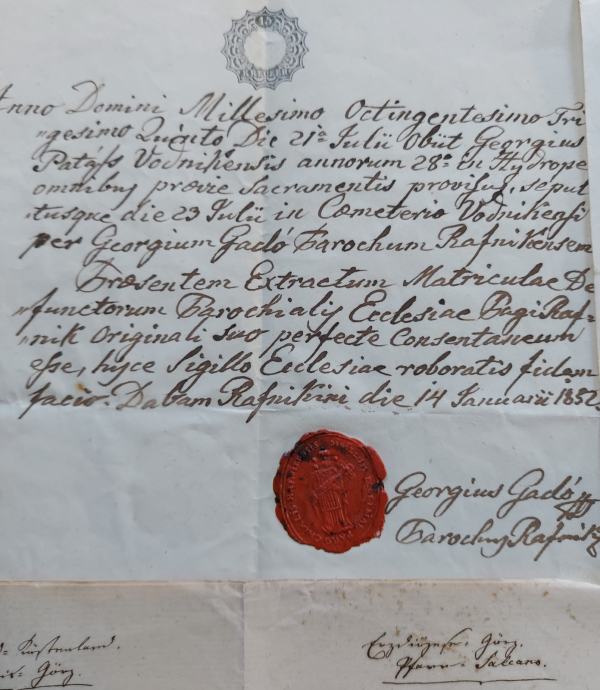 15
KREUZER
Anno Domini Millesimo Octingentesimo Tri
gesimo Quinto Die 21ª Iulii Obiit Georgius
Vodnikensis annorum 28ª in Hydrope
omnibus praevie Sacramentis provisus, sepul
tusque die 23 Iulii in Coemeterio Vodnikensi
per Georgium Gadó Parochum Rafnikensem
Praesentem Extractum Matriculae De
functorum Parochialis Ecclesiae Pagi Raf=
nik Originali suo perfecte Consentaneum
esse, hisce Sigillo Ecclesiae roboratis fidem
facio. Dabam Rafnikini die 14 Ianuarii 1852
Georgius Gadó
Parochus Rafnik
Küstenland.
Görz.
Erzdiözese: Görz.
Pfarre: Salcano.